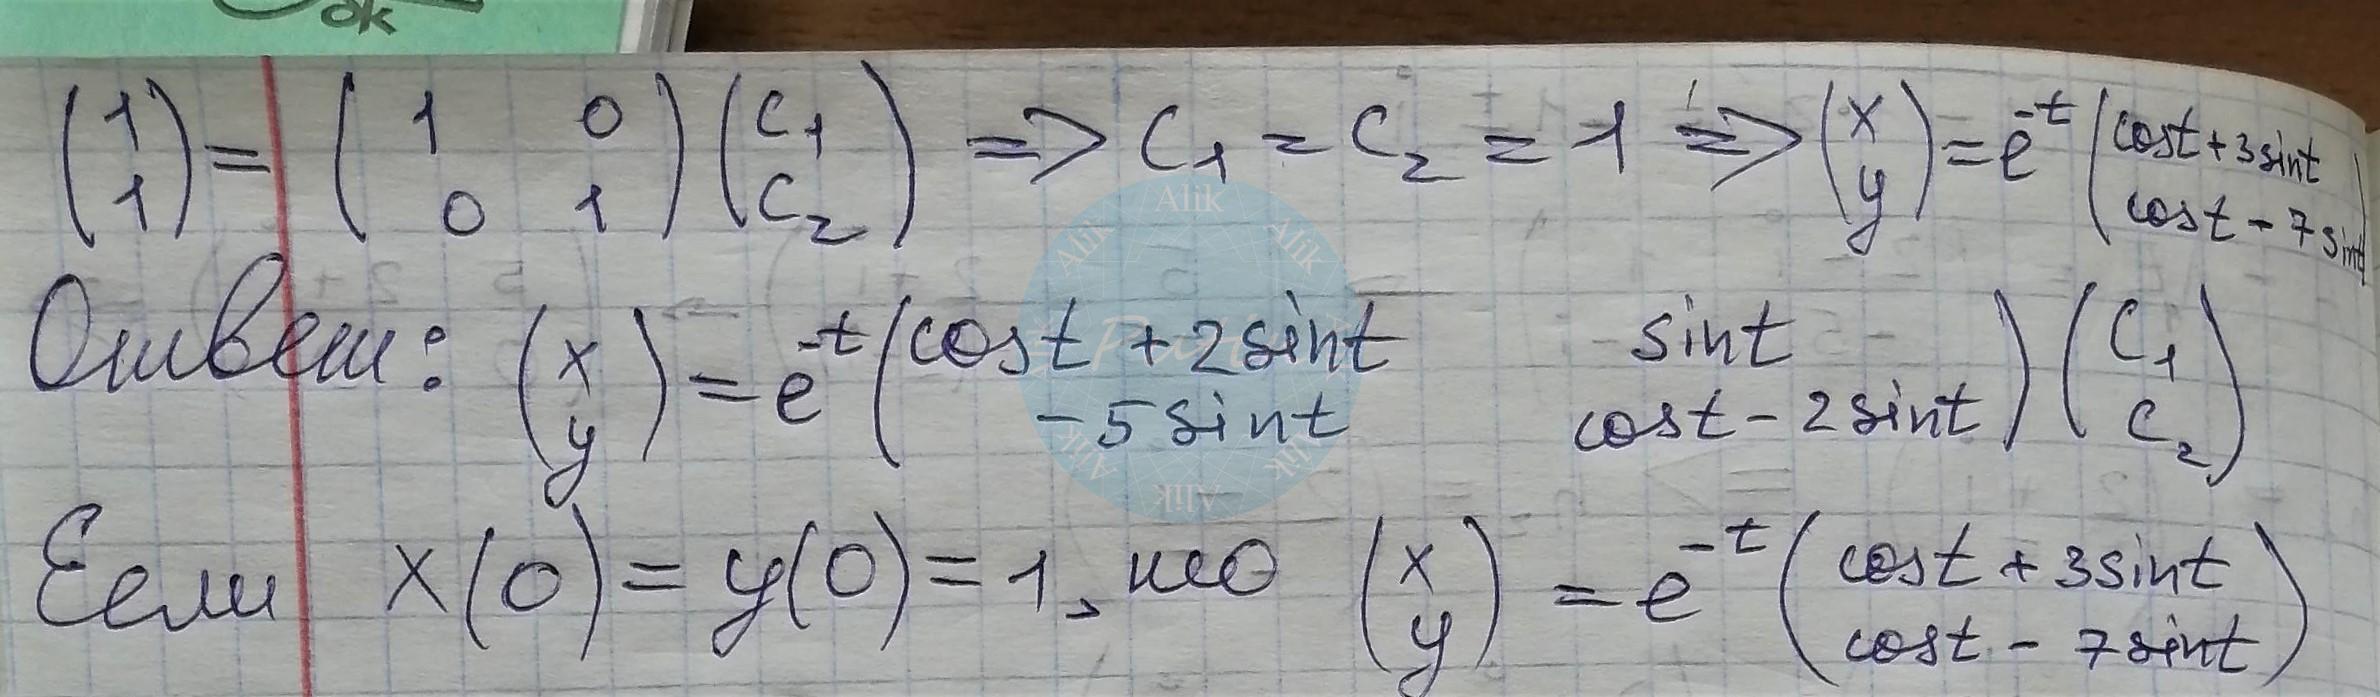 ок
(1 1) = (1 0 0 1)(C₁ C₂) => C₁ = C₂ = 1 => (x y) = e^{-t}(cost + 3sint cost - 7sint)
Ответ: (x y) = e^{-t}(cost + 2sint sint -5sint cost - 2sint)(C₁ C₂)
Если x(0) = y(0) = 1, то (x y) = e^{-t}(cost + 3sint cost - 7sint)
Alik
Alik
Alik
Alik
Alik
Alik